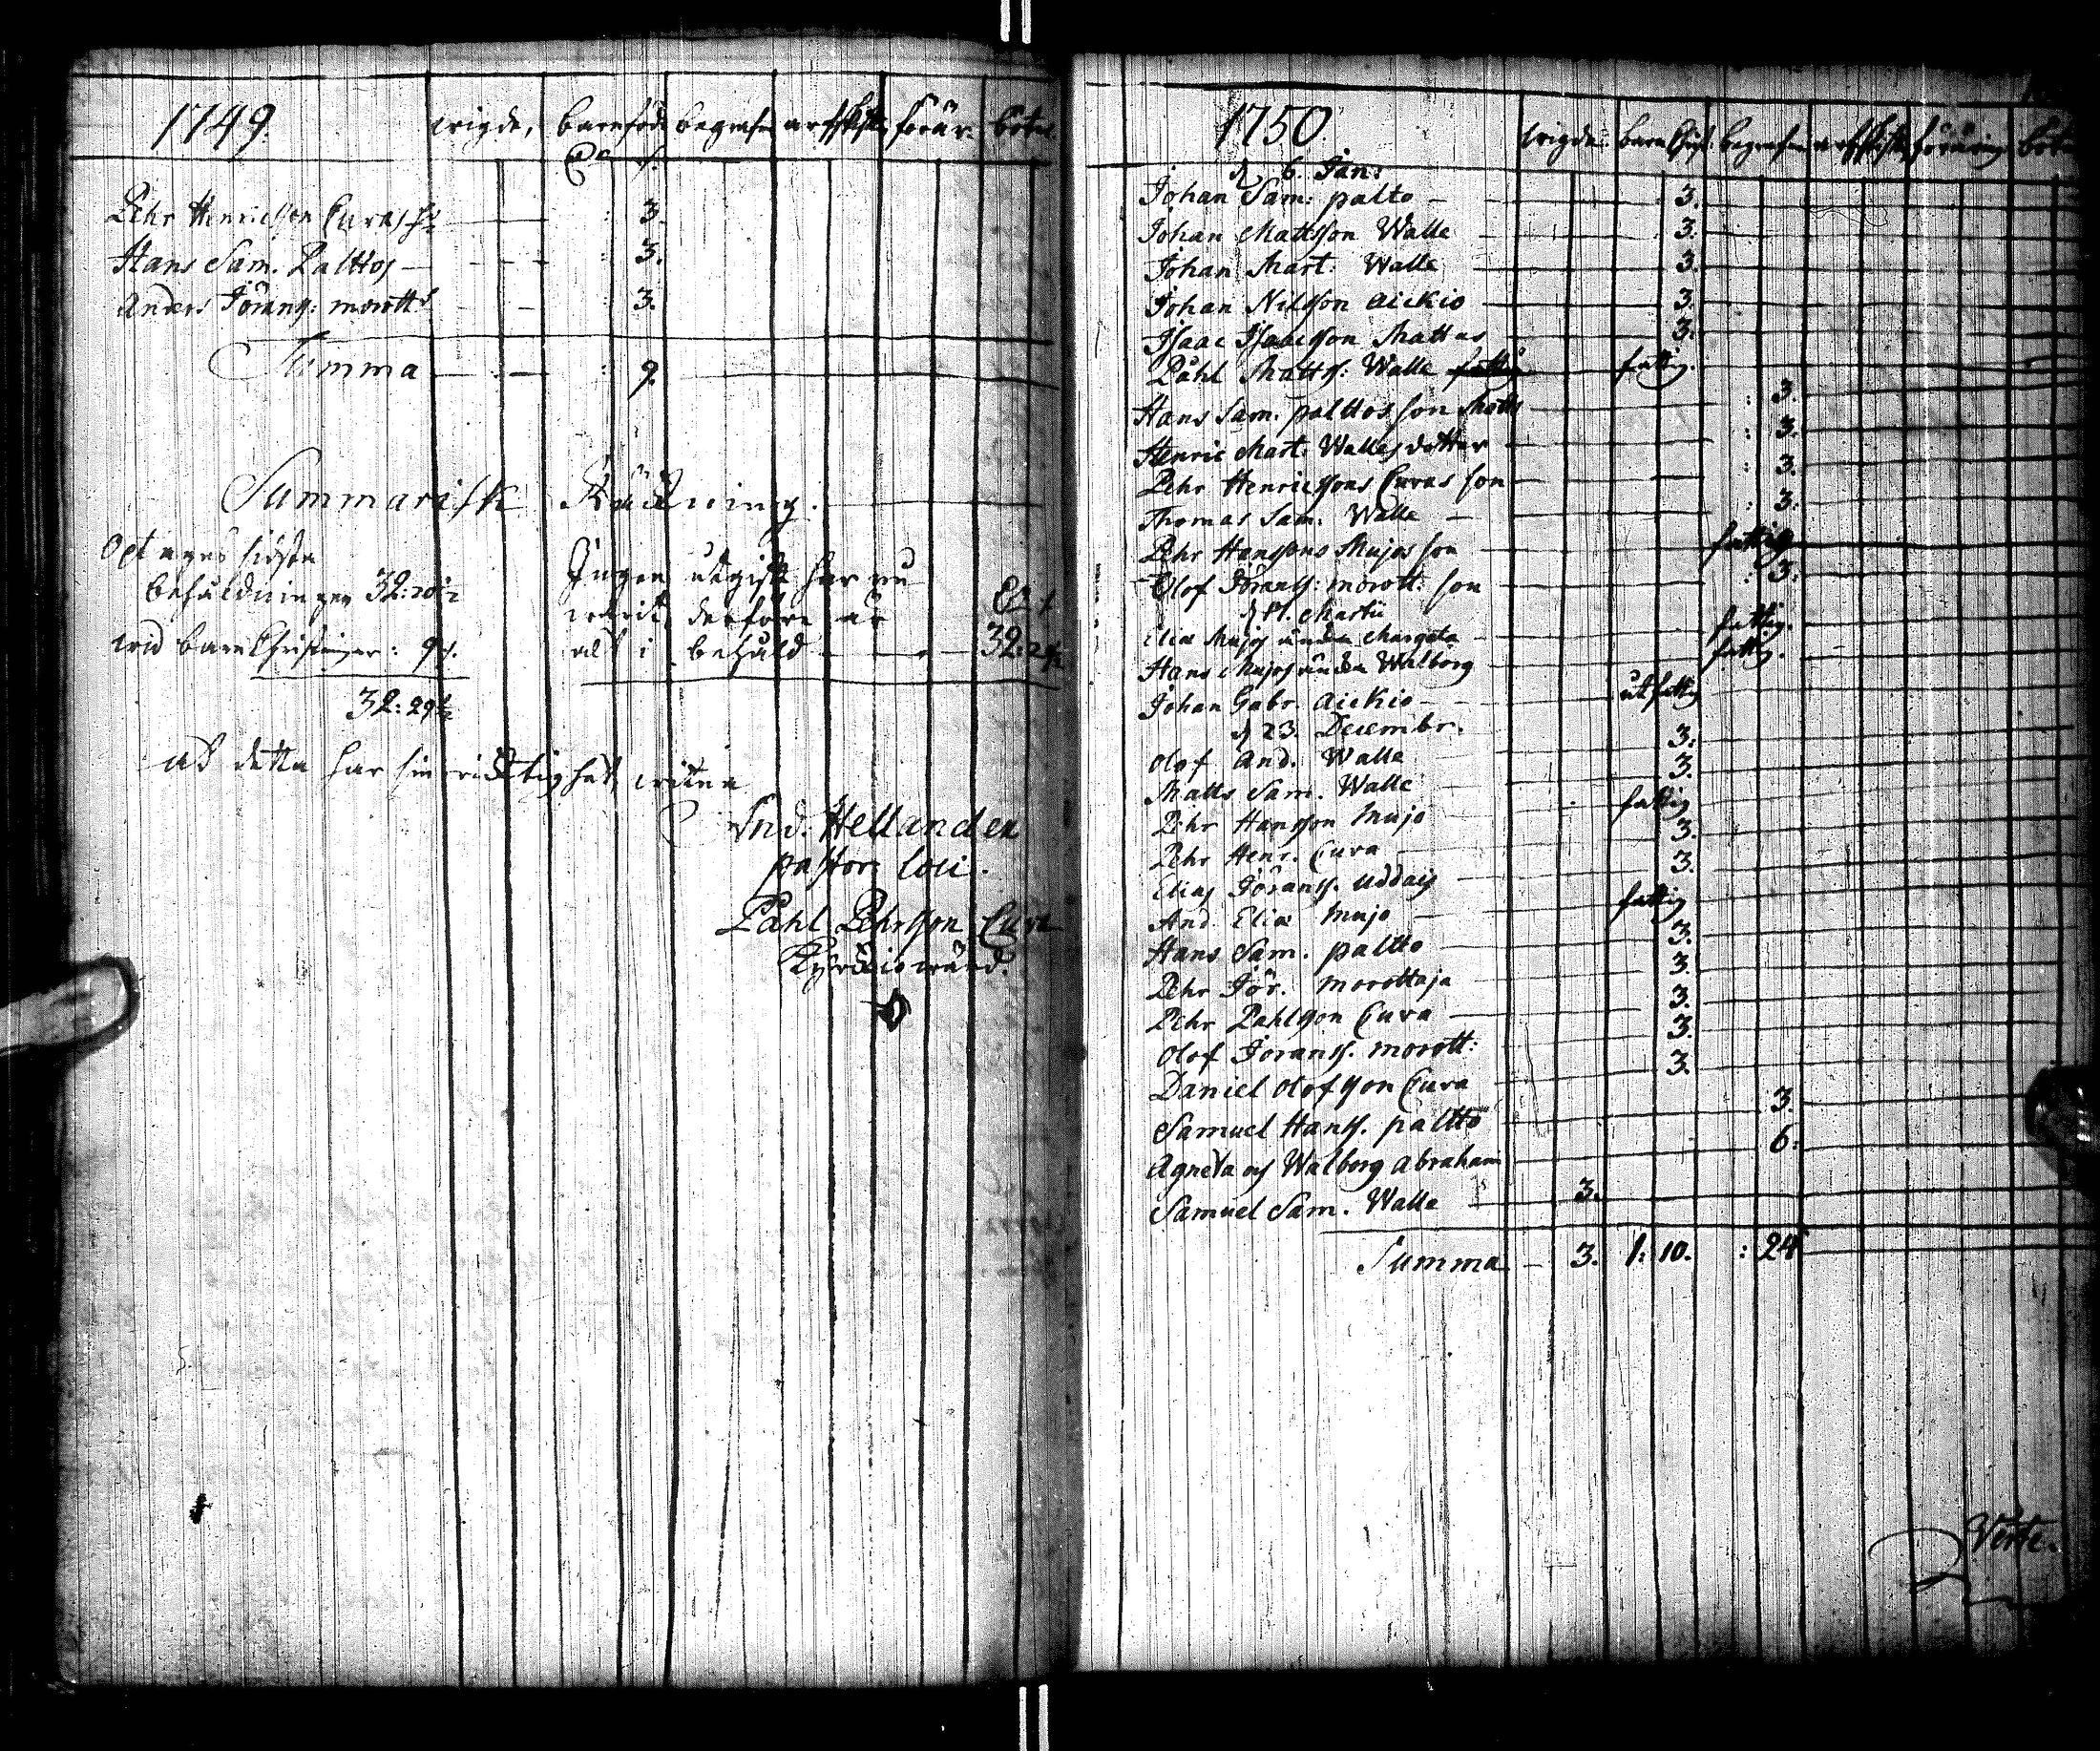 1749. wigde, barnföde begrafn arfskifte förär: böter
Pehr Henricsson Curas h:
3.
Hans Sam. Palttos —
3.
Anders Jörans: morott:
3.
Summa — : 9.
Summarisk Räkning.
Optages sidsta
behåldningen 32: 20½
wid barn Christningar: 9 /.
32: 29½
Ingen utgift har nu
warit, derföre är
alt i behåld — 32: 29½
at detta har sin richtighet, witna
And. Hellander
pastor loci.
Påhl Pehrsson Cura
Kyrckiowärd.
1750. wigde: barn Christ: begrafn arfskifte föräring böter
d. 6. Jan:
Johan Sam: palto — 3.
Johan Mattsson Walle — 3.
Johan Mart: Walle — 3.
Johan Nilsson Aickio — 3.
Isaac Isaacsson Mattus — 3.
Påhl Matts: Walle fattig fattig.
Hans Sam. palttos son Matts : 3.
Henric Mart: Walles dotter : 3.
Pehr Henricssons Curas son : 3.
Thomas Sam. Walle — : 3:
Pehr Hanssons Mujos son — fattig
Olof Jöranss: morott: son : 3:
Martii
Elias Mujos Margeta — fattig.
Hans Mujos Walborg — fattig.
Johan Gabr. Aickio — utfattig
d 23. Decembr.
Olof And. Walle 3:
Matts Sam. Walle 3.
Pehr Hansson Mujo fattig
Pehr Henr. Cura 3.
Elias Jöranss. Uddas 3.
And. Elia Mujo — fattig
Hans Sam. paltto 3.
Pehr Jör. Morottaja 3.
Pehr Påhlsson Cura — 3.
Olof Joranss. morott: 3.
Daniel Olofsson Cura 3.
Samuel Hanss. paltto 3.
Agneta och Walborg Abraham 6:
Samuel Sam. Walle 3.
Summa — 3. 1: 10. : 24
Verte.